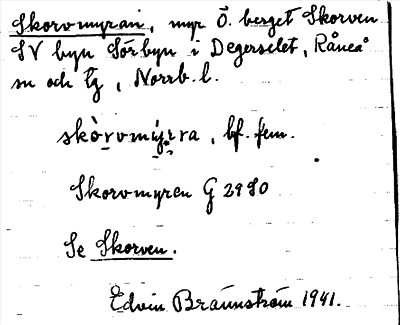 Skorvmyran, myr Ö. berget Skorven
SV byn Sörbyn i Degerselet, Råneå
sn och tg, Norrb. l.
skòrvmy̆rra, bf. fem.
Skorvmyren G 2980
Se Skorven.
Edvin Brännström 1941.